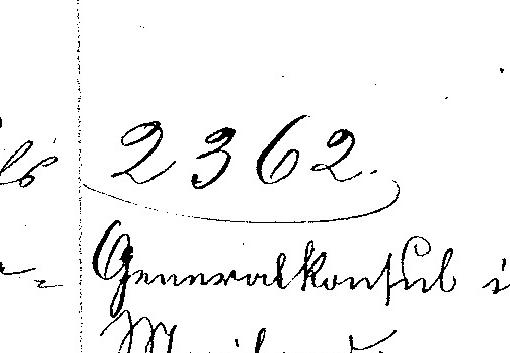 2362.
Generalkonsul i